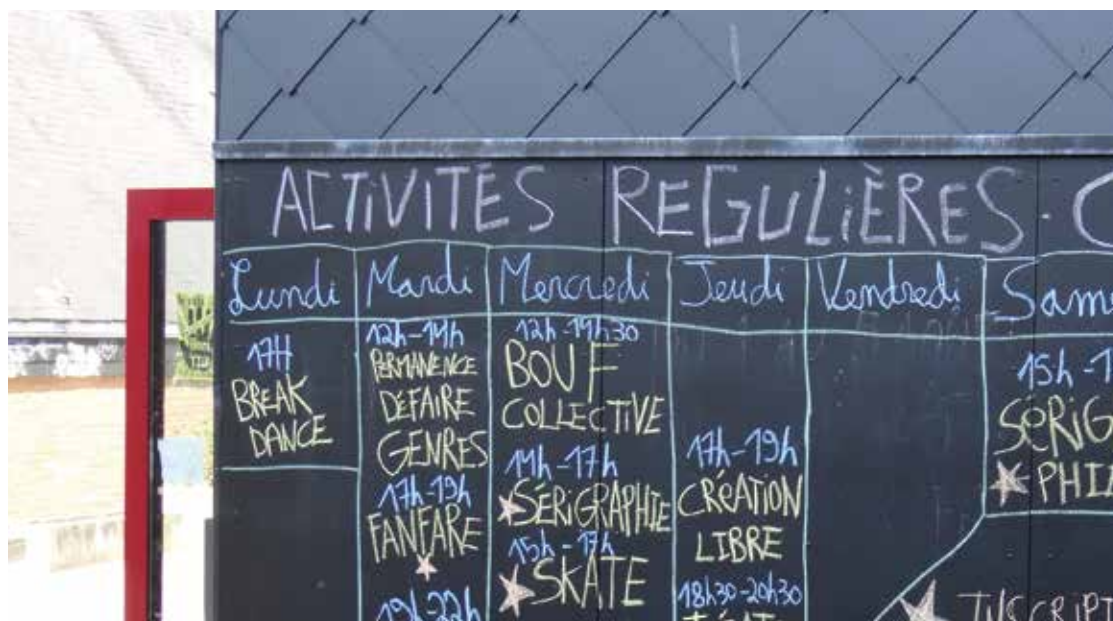 ACTiViTÉS REGULiÈRES · C
Lundi
Mardi
Mercredi
Jeudi
Vendredi
Sam
17H
BREAK
DANCE
12h-14h
PERMANENCE
DÉFAIRE
GENRES
17h-19h
FANFARE
19h-22h
BOUF
COLLECTIVE
14h-17h
SÉRiGRAPHiE
15h-17h
SKATE
17h-19h
CRÉATION
LIBRE
18h30-20h30
15h-1
SÉRiG
PHiA
INSCRIPT